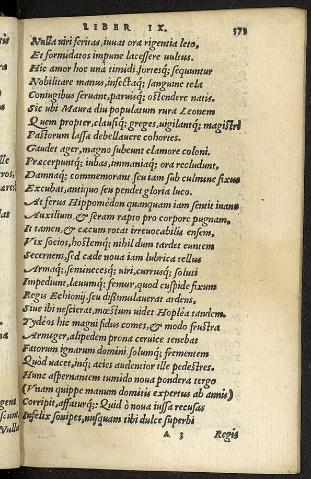 LIBER IX. 373
Nulla uiri feritas, iuuat ora rigentia leto,
Et formidatos impune lacessere uultus.
Hic amor hoc una timidi fortesq́; sequuntur
Nobilitare manus, infectaq́; sanguine tela
Coniugibus seruant, paruisq́; ostendere natis.
Sic ubi Maura diu populatum rura Leonem
Quem propter, clausiq́; greges, uigilantq́; magistri
Pastorum lassæ debellauere cohortes.
Gaudet ager, magno subeunt clamore coloni.
Præcerpuntq́; iubas, immaniaq́; ora recludunt,
Damnaq́; commemorant seu iam sub culmine fixus
Excubat, antiquo seu pendet gloria luco.
At ferus Hippomedon quanquam iam sentit inane
Auxilium, & seram rapto pro corpore pugnam,
It tamen, & cæcum rotat irreuocabilis ensem,
Vix socios, hostemq́; nihil dum tardet euntem
Secernens, sed cæde noua iam lubrica tellus
Armaq́; semineceśq; uiri, currusq́; soluti
Impediunt, læuumq́; femur, quod cuspide fixum
Regis Echionij, seu dissimulauerat ardens,
Siue ibi nescierat, mœstum uidet Hopleа tandem.
Tydeos hic magni fidus comes, & modo frustra
Armiger, alipedem prona ceruice tenebat
Fatorum ignarum domini, solumq́; frementem
Quòd uacet, inq́; acies audentior ille pedestres.
Hunc aspernantem tumido noua pondera tergo
(Vnam quippe manum domitis expertus ab annis)
Corripit, affaturq́;: Quid ò noua iussa recusas
Infelix sonipes, nusquam tibi dulce superbi
A 3 Regis